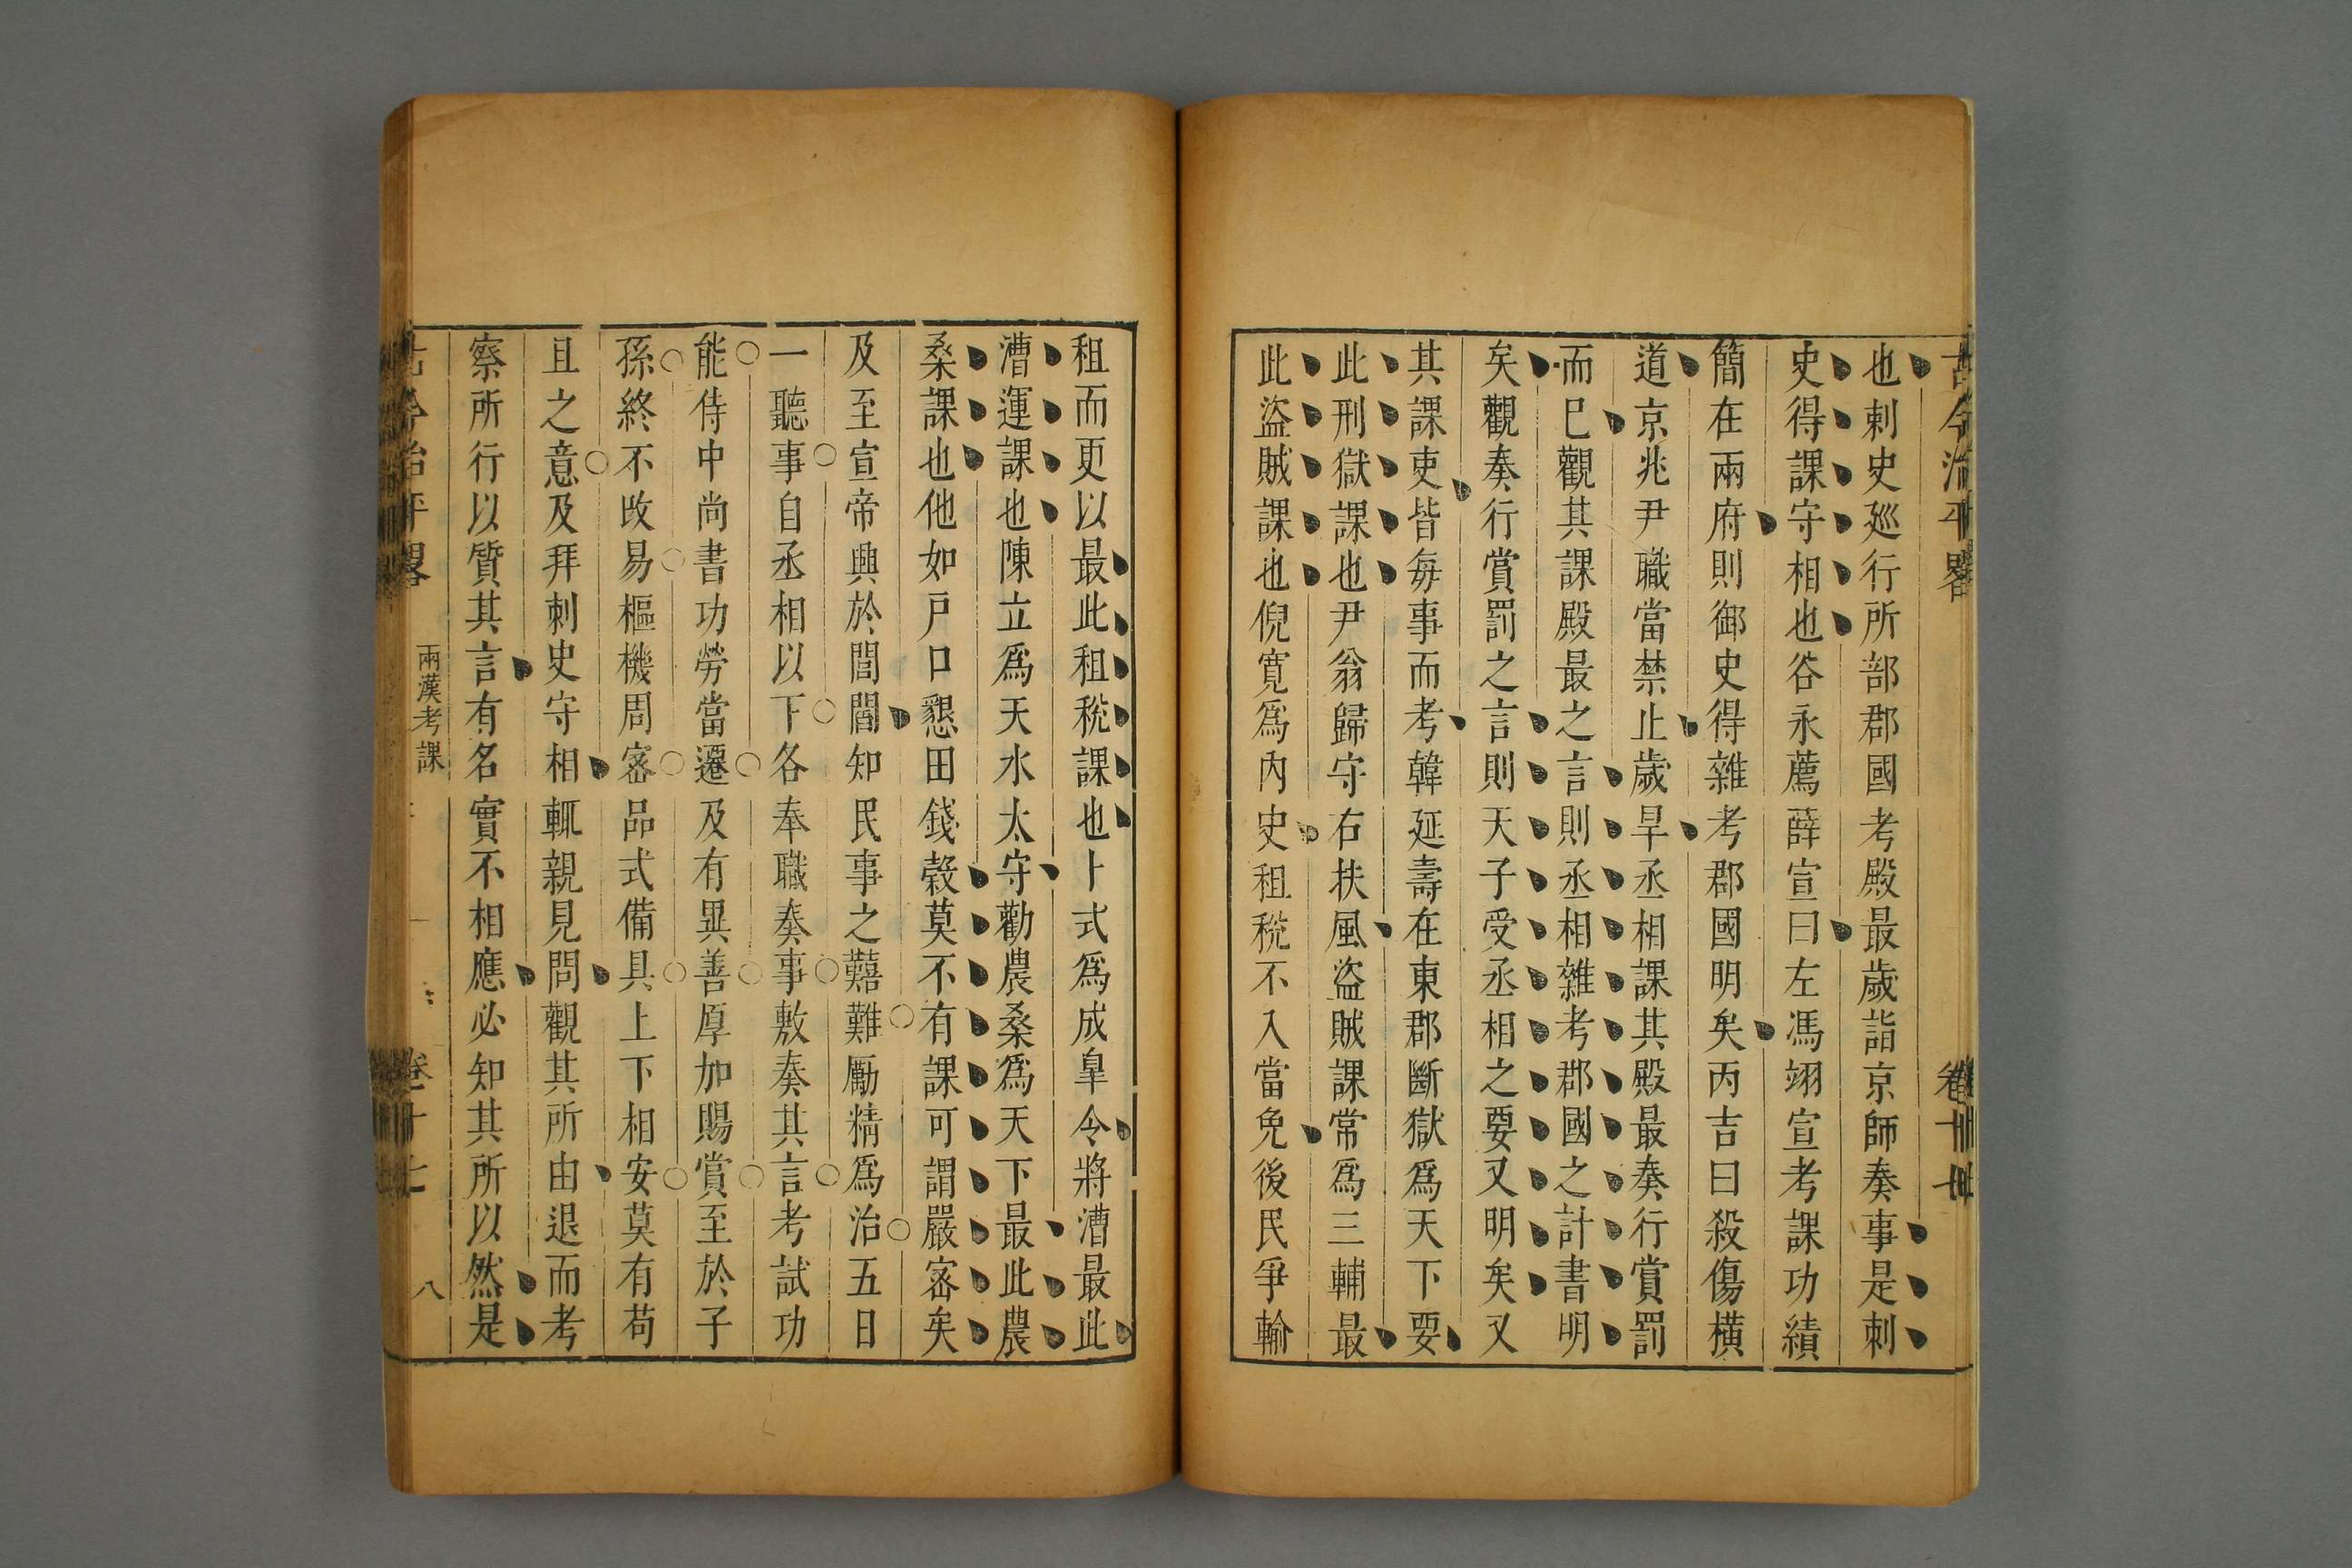 也刺史廵行所部郡國考殿最歲詣京師奏事是刺
史得課守相也谷永薦薛宣曰左馮翊宣考課功績
簡在兩府則御史得雜考郡國明矣丙吉曰殺傷橫
道京兆尹職當禁止歲旱丞相課其殿最奏行賞罰
而巳觀其課殿最之言則丞相雜考郡國之計書明
矣觀奏行賞罰之言則天子受丞相之要又明矣又
其課吏皆每事而考韓延壽在東郡斷獄爲天下要
此刑獄課也尹翁歸守右扶風盜賊課常爲三輔最
此盜賊課也倪寬爲內史租稅不入當免後民爭輸
租而更以最此租稅課也卜式爲成皐令將漕最此
漕運課也陳立爲天水太守勸農桑爲天下最此農
桑課也他如戸口懇田錢穀莫不有課可謂嚴宻矣
及至宣帝興於閭閻知民事之囏難勵精爲治五日
一聽事自丞相以下各奉職奏事敷奏其言考試功
能侍中尚書功勞當遷及有異善厚加賜賞至於子
孫終不攺易樞機周宻品式備具上下相安莫有苟
且之意及拜刺史守相輒親見問觀其所由退而考
察所行以質其言有名實不相應必知其所以然是
古今治平畧
兩漢考課
卷十七
八